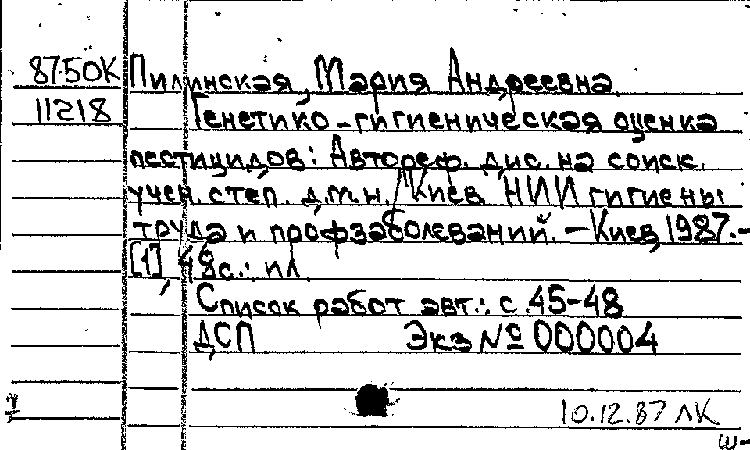 87.50К Пилинская, Мария Андреевна
11218 Генетико-гигиеническая оценка
пестицидов: Автореф. дис. на соиск.
учен. степ. д.м.н./Киев. НИИ гигиены
труда и профзаболеваний. – Киев, 1987. –
[1], 48с.: ил
Список работ авт.: с. 45-48
ДСП Экз № 000004
10.12.87 ЛК